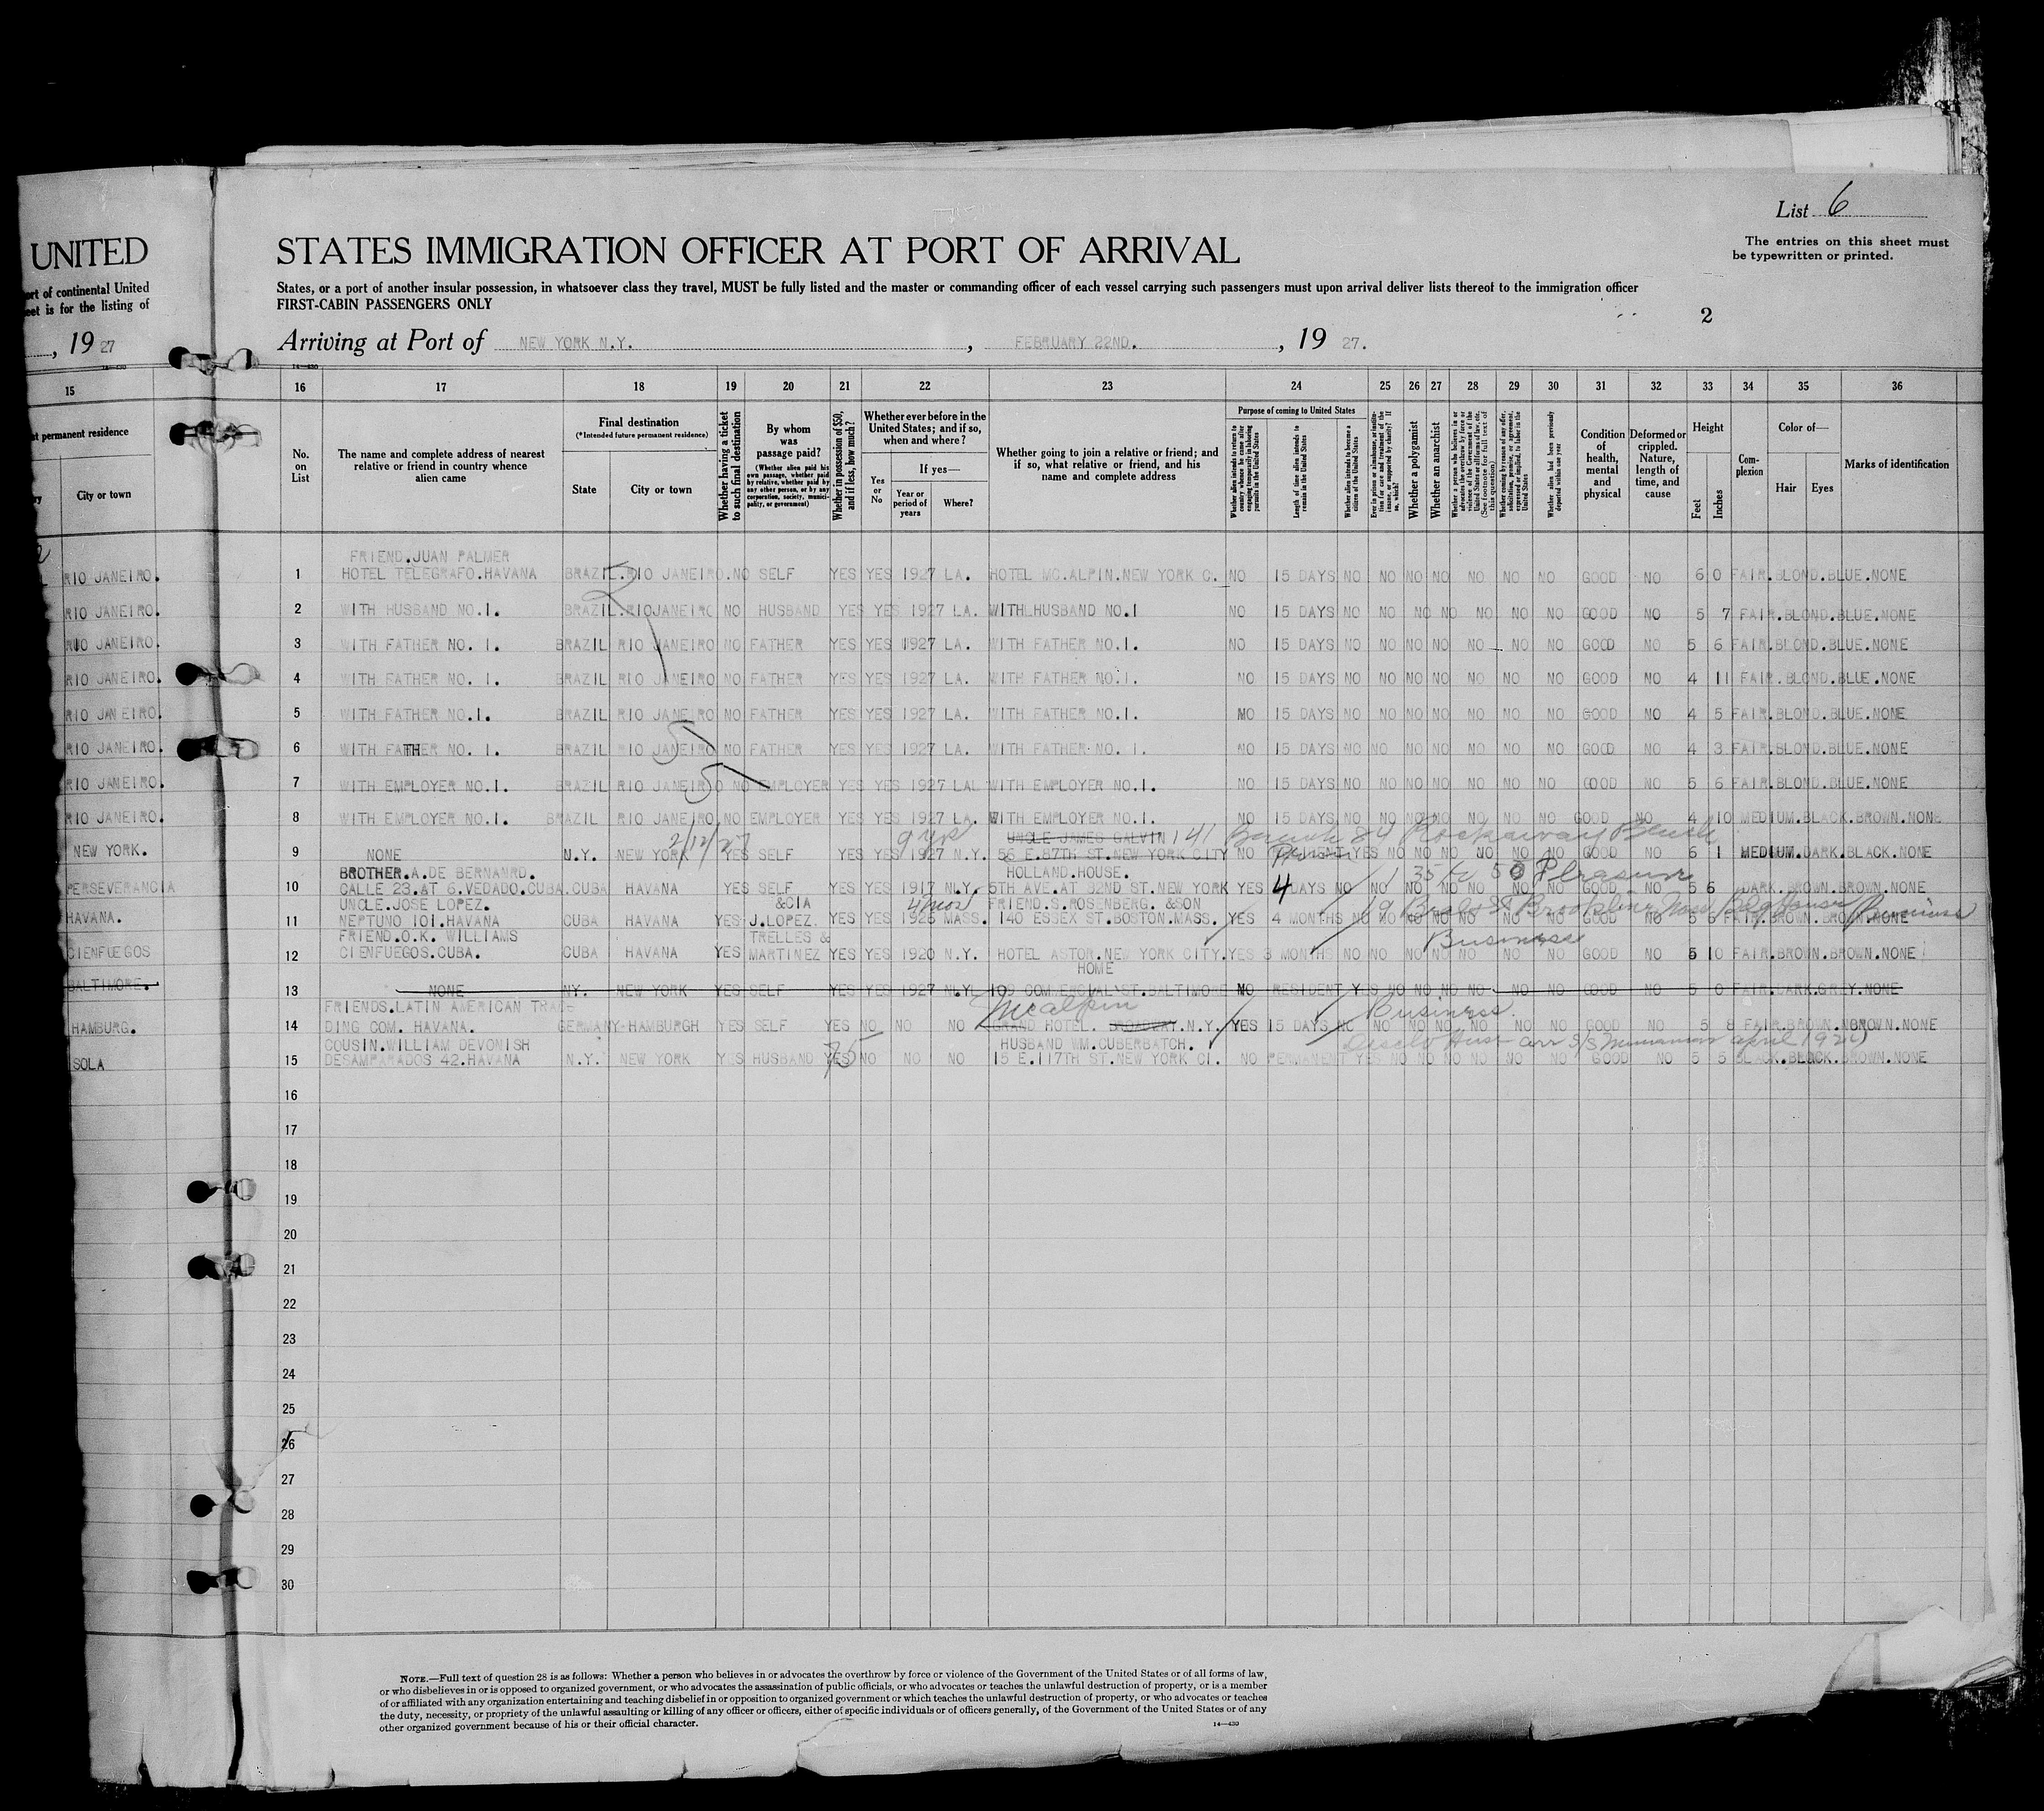 List 6
The entries on this sheet must
be typewritten or printed.
UNITED
STATES IMMIGRATION OFFICER AT PORT OF ARRIVAL
ort of continental United
eet is for the listing of
States, or a port of another insular possession, in whatsoever class they travel, MUST be fully listed and the master or commanding officer of each vessel carrying such passengers must upon arrival deliver lists thereof to the immigration officer
FIRST-CABIN PASSENGERS ONLY
2
, 19 27
Arriving at Port of NEW YORK N.Y. , FEBRUARY 22ND. , 19 27.
15 16 17 18 19 20 21 22 23 24 25 26 27 28 29 30 31 32 33 34 35 36
st permanent residence
City or town
No. on List
The name and complete address of nearest relative or friend in country whence alien came
Final destination
(*Intended future permanent residence)
State
City or town
Whether having a ticket to such final destination
By whom was passage paid?
(Whether alien paid his own passage, whether paid by relative, whether paid by any other person, or by any corporation, society, municipality, or government)
Whether in possession of $50, and if less, how much?
Whether ever before in the United States; and if so, when and where?
Yes or No
If yes—
Year or period of years
Where?
Whether going to join a relative or friend; and if so, what relative or friend, and his name and complete address
Purpose of coming to United States
Whether alien intends to return to country whence he came after engaging temporarily in laboring pursuits in the United States
Length of time alien intends to remain in the United States
Whether alien intends to become a citizen of the United States
Ever in prison or almshouse, or institution for care and treatment of the insane, or supported by charity? If so, which?
Whether a polygamist
Whether an anarchist
Whether a person who believes in or advocates the overthrow by force or violence of the Government of the United States or all forms of law, etc. (See footnote for full text of this question)
Whether coming by reason of any offer, solicitation, promise, or agreement, expressed or implied, to labor in the United States
Whether alien had been previously deported within one year
Condition of health, mental and physical
Deformed or crippled. Nature, length of time, and cause
Height
Feet
Inches
Complexion
Color of—
Hair
Eyes
Marks of identification
FRIEND.JUAN PALMER
RIO JANEIRO. 1 HOTEL TELEGRAFO.HAVANA BRAZIL.RIO JANEIRO.NO SELF YES YES 1927 LA. HOTEL MC.ALPIN.NEW YORK C. NO 15 DAYS NO NO NO NO NO NO NO GOOD NO 6 0 FAIR.BLOND.BLUE.NONE
RIO JANEIRO. 2 WITH HUSBAND NO.1. BRAZIL.RIOJANEIRO NO HUSBAND YES YES 1927 LA. WITH HUSBAND NO.1 NO 15 DAYS NO NO NO NO NO NO NO GOOD NO 5 7 FAIR.BLOND.BLUE.NONE
RIO JANEIRO. 3 WITH FATHER NO. 1. BRAZIL RIO JANEIRO NO FATHER YES YES 1927 LA. WITH FATHER NO.1. NO 15 DAYS NO NO NO NO NO NO NO GOOD NO 5 6 FAIR.BLOND.BLUE.NONE
RIO JANEIRO. 4 WITH FATHER NO. 1. BRAZIL RIO JANEIRO NO FATHER YES YES 1927 LA. WITH FATHER NO.1. NO 15 DAYS NO NO NO NO NO NO NO GOOD NO 4 11 FAIR.BLOND.BLUE.NONE
RIO JANEIRO. 5 WITH FATHER NO.1. BRAZIL RIO JANEIRO NO FATHER YES YES 1927 LA. WITH FATHER NO.1. NO 15 DAYS NO NO NO NO NO NO NO GOOD NO 4 5 FAIR.BLOND.BLUE.NONE
RIO JANEIRO. 6 WITH FATHER NO. 1. BRAZIL RIO JANEIRO NO FATHER YES YES 1927 LA. WITH FATHER NO. 1. NO 15 DAYS NO NO NO NO NO NO NO GOOD NO 4 3 FAIR.BLOND.BLUE.NONE
RIO JANEIRO. 7 WITH EMPLOYER NO.1. BRAZIL RIO JANEIRO NO EMPLOYER YES YES 1927 LA. WITH EMPLOYER NO.1. NO 15 DAYS NO NO NO NO NO NO NO GOOD NO 5 6 FAIR.BLOND.BLUE.NONE
RIO JANEIRO. 8 WITH EMPLOYER NO.1. BRAZIL RIO JANEIRO.NO EMPLOYER YES YES 1927 LA. WITH EMPLOYER NO.1. NO 15 DAYS NO NO NO NO NO NO NO GOOD NO 4 10 MEDIUM.BLACK.BROWN.NONE
2/12/27 9 yrs UNCLE JAMES GALVIN 141 Beach 84 Rockaway Beach
NEW YORK. 9 NONE N.Y. NEW YORK YES SELF YES YES 1927 N.Y. 56 E.87TH ST.NEW YORK CITY NO YES NO NO NO NO NO NO GOOD NO 6 1 MEDIUM.DARK.BLACK.NONE
BROTHER.A.DE BERNANRD. HOLLAND.HOUSE. Pleasure
PERSEVERANCIA 10 CALLE 23.AT 6.VEDADO.CUBA.CUBA HAVANA YES SELF YES YES 1917 N.Y. 5TH AVE.AT 32ND ST.NEW YORK YES 4 DAYS NO NO NO NO NO NO NO GOOD NO 5 6 DARK.BROWN.BROWN.NONE
UNCLE.JOSE LOPEZ. &CIA 4 mos FRIEND.S.ROSENBERG. &SON Business
HAVANA. 11 NEPTUNO 101.HAVANA CUBA HAVANA YES J.LOPEZ. YES YES 1926 MASS. 140 ESSEX ST.BOSTON.MASS. YES 4 MONTHS NO NO NO NO NO NO NO GOOD NO 5 6 FAIR.BROWN.BROWN.NONE
FRIEND.O.K. WILLIAMS TRELLES & Business
CIENFUEGOS 12 CIENFUEGOS.CUBA. CUBA HAVANA YES MARTINEZ YES YES 1920 N.Y. HOTEL ASTOR.NEW YORK CITY.YES 3 MONTHS NO NO NO NO NO NO NO GOOD NO 5 10 FAIR.BROWN.BROWN.NONE
HOME
BALTIMORE. 13 NONE NY. NEW YORK YES SELF YES YES 1927 N.Y. 109 COMMERCIAL ST.BALTIMORE NO RESIDENT YES NO NO NO NO NO NO GOOD NO 5 0 FAIR.DARK.GREY.NONE
FRIENDS.LATIN AMERICAN TRADE McAlpin Business.
HAMBURG. 14 DING COM. HAVANA. GERMANY-HAMBURGH YES SELF YES NO NO NO GRAND HOTEL. BROADWAY.N.Y. YES 15 DAYS NO NO NO NO NO NO NO GOOD NO 5 8 FAIR.BROWN.BROWN.NONE
COUSIN.WILLIAM DEVONISH HUSBAND WM.CUBERBATCH.
SOLA 15 DESAMPARADOS 42.HAVANA N.Y. NEW YORK YES HUSBAND YES 75 NO NO NO 15 E.117TH ST.NEW YORK CI. NO PERMANENT YES NO NO NO NO NO NO GOOD NO 5 5 BLACK.BLACK.BROWN.NONE
16
17
18
19
20
21
22
23
24
25
26
27
28
29
30
NOTE.—Full text of question 28 is as follows: Whether a person who believes in or advocates the overthrow by force or violence of the Government of the United States or of all forms of law,
or who disbelieves in or is opposed to organized government, or who advocates the assassination of public officials, or who advocates or teaches the unlawful destruction of property, or is a member
of or affiliated with any organization entertaining and teaching disbelief in or opposition to organized government or which teaches the unlawful destruction of property, or who advocates or teaches
the duty, necessity, or propriety of the unlawful assaulting or killing of any officer or officers, either of specific individuals or of officers generally, of the Government of the United States or of any
other organized government because of his or their official character.
14—430